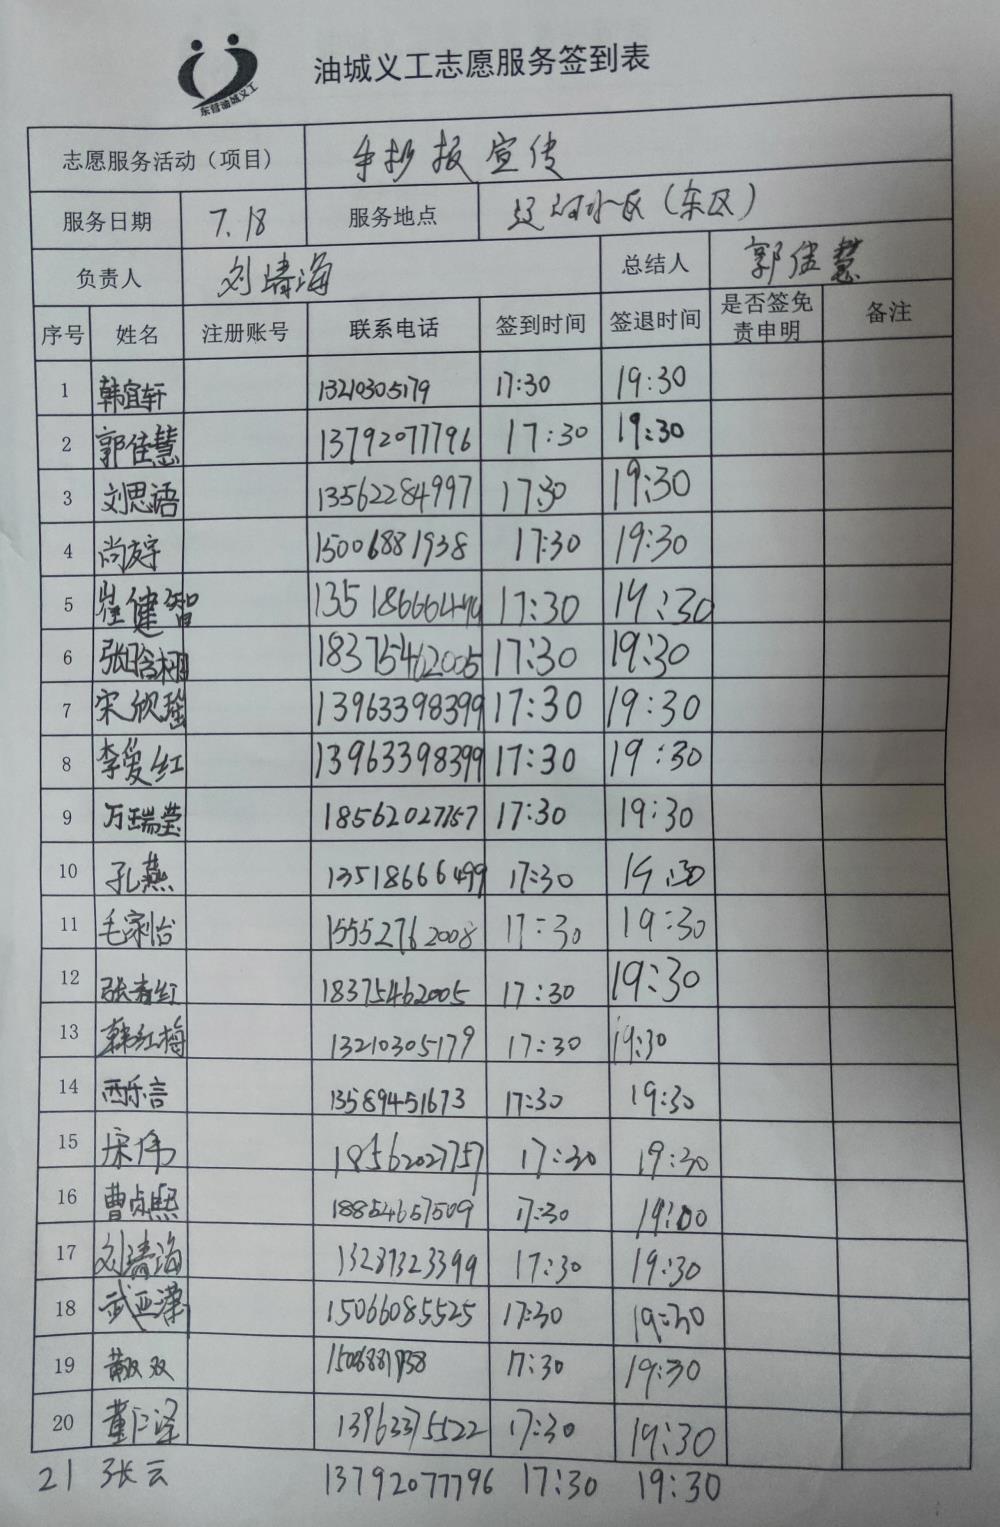 东营油城义工
油城义工志愿服务签到表
志愿服务活动（项目） 手抄报宣传
服务日期 7.18 服务地点 辽河小区（东区）
负责人 刘靖海 总结人 郭佳慧
序号 姓名 注册账号 联系电话 签到时间 签退时间 是否签免责申明 备注
1 韩宜轩 13210305179 17:30 19:30
2 郭佳慧 13792077796 17:30 19:30
3 刘思语 13562284997 17:30 19:30
4 尚友宇 15006881938 17:30 19:30
5 崔健智 17:30 19:30
6 18375462005 17:30 19:30
7 宋欣瑶 13963398399 17:30 19:30
8 李爱红 13963398399 17:30 19:30
9 万瑞莹 18562027757 17:30 19:30
10 孔燕 13518666499 17:30 19:30
11 毛家怡 15552762008 17:30 19:30
12 张春红 18375462005 17:30 19:30
13 韩红梅 13210305179 17:30 19:30
14 西乐言 13589451673 17:30 19:30
15 宋伟 18562027757 17:30 19:30
16 18854657509 17:30
17 刘靖海 13287323399 17:30 19:30
18 武亚潇 15066085525 17:30 19:30
19 双 17:30 19:30
20 董仁泽 13963375522 17:30 19:30
21 张云 13792077796 17:30 19:30